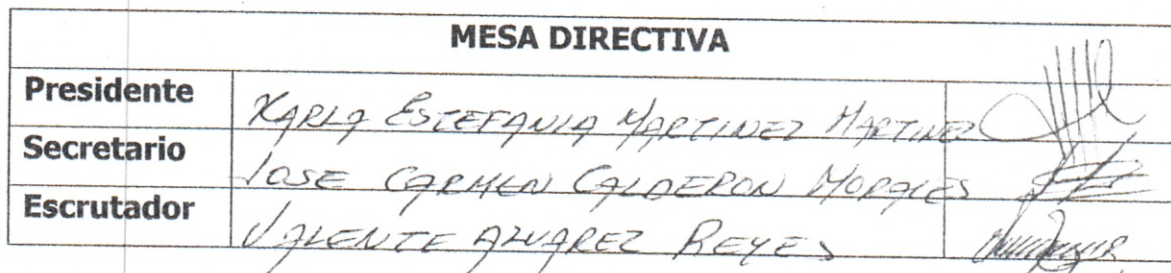 MESA DIRECTIVA
Presidente KARLA ESTEFANIA MARTINEZ MARTINEZ
Secretario JOSE CARMEN CALDERON MORALES
Escrutador VALENTE ALVAREZ REYES